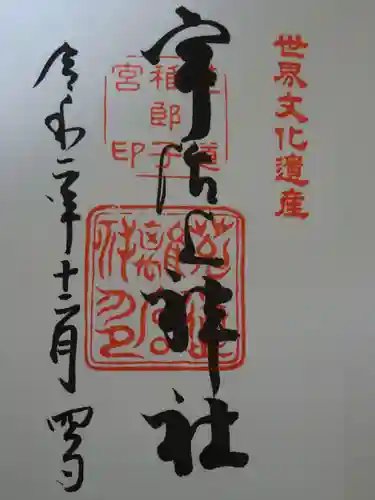 世界文化遺産
宇治上神社
令和二年十二月 四日
道
稚郎子
宮印